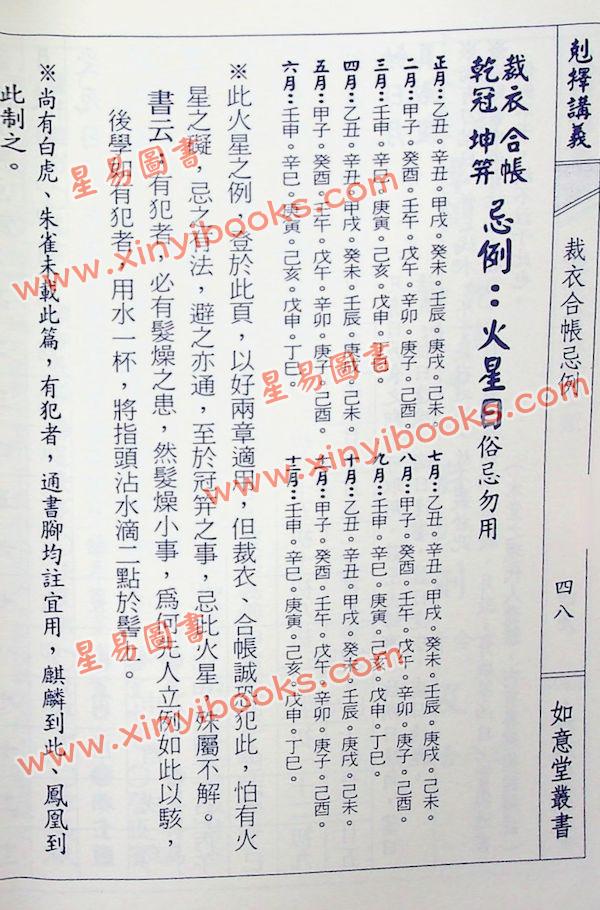 剋擇講義
裁衣合帳忌例
四八
如意堂叢書
裁衣 合帳
乾冠 坤笄
忌例：火星日俗忌勿用
正月：乙丑。辛丑。甲戌。癸未。壬辰。庚戌。己未。
二月：甲子。癸酉。壬午。戊午。辛卯。庚子。己酉。
三月：壬申。辛巳。庚寅。己亥。戊申。丁巳。
四月：乙丑。辛丑。甲戌。癸未。壬辰。庚戌。己未。
五月：甲子。癸酉。壬午。戊午。辛卯。庚子。己酉。
六月：壬申。辛巳。庚寅。己亥。戊申。丁巳。
七月：乙丑。辛丑。甲戌。癸未。壬辰。庚戌。己未。
八月：甲子。癸酉。壬午。戊午。辛卯。庚子。己酉。
九月：壬申。辛巳。庚寅。己亥。戊申。丁巳。
十月：乙丑。辛丑。甲戌。癸未。壬辰。庚戌。己未。
十一月：甲子。癸酉。壬午。戊午。辛卯。庚子。己酉。
十二月：壬申。辛巳。庚寅。己亥。戊申。丁巳。
※此火星之例，登於此頁，以好兩章適用，但裁衣、合帳誠恐犯此，怕有火
星之礙，忌之有法，避之亦通，至於冠笄之事，忌此火星，殊屬不解。
書云：有犯者，必有髮燥之患，然髮燥小事，為何先人立例如此以駭，
後學如有犯者，用水一杯，將指頭沾水滴二點於髻上。
※尚有白虎、朱雀未載此篇，有犯者，通書腳均註宜用，麒麟到此、鳳凰到
此制之。
星易圖書
www.xinyibooks.com
星易圖書
www.xinyibooks.com
星易圖書
www.xinyibooks.com